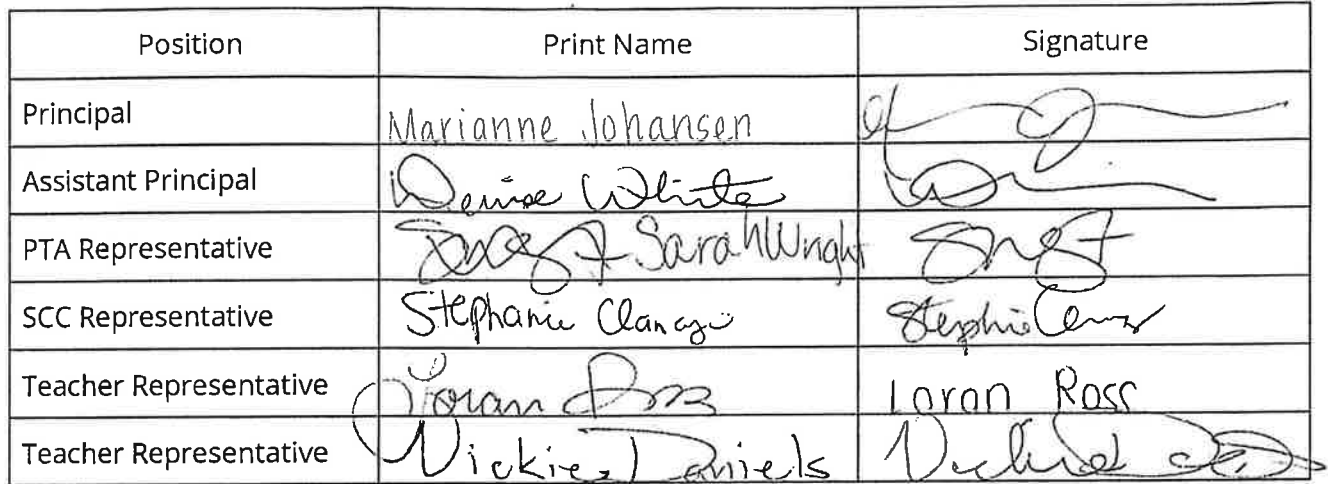 Position Print Name Signature
Principal Marianne Johansen
Assistant Principal Denise White
PTA Representative Sarah Wright
SCC Representative Stephanie Clancy
Teacher Representative Loran Ross Loran Ross
Teacher Representative Vickie Daniels